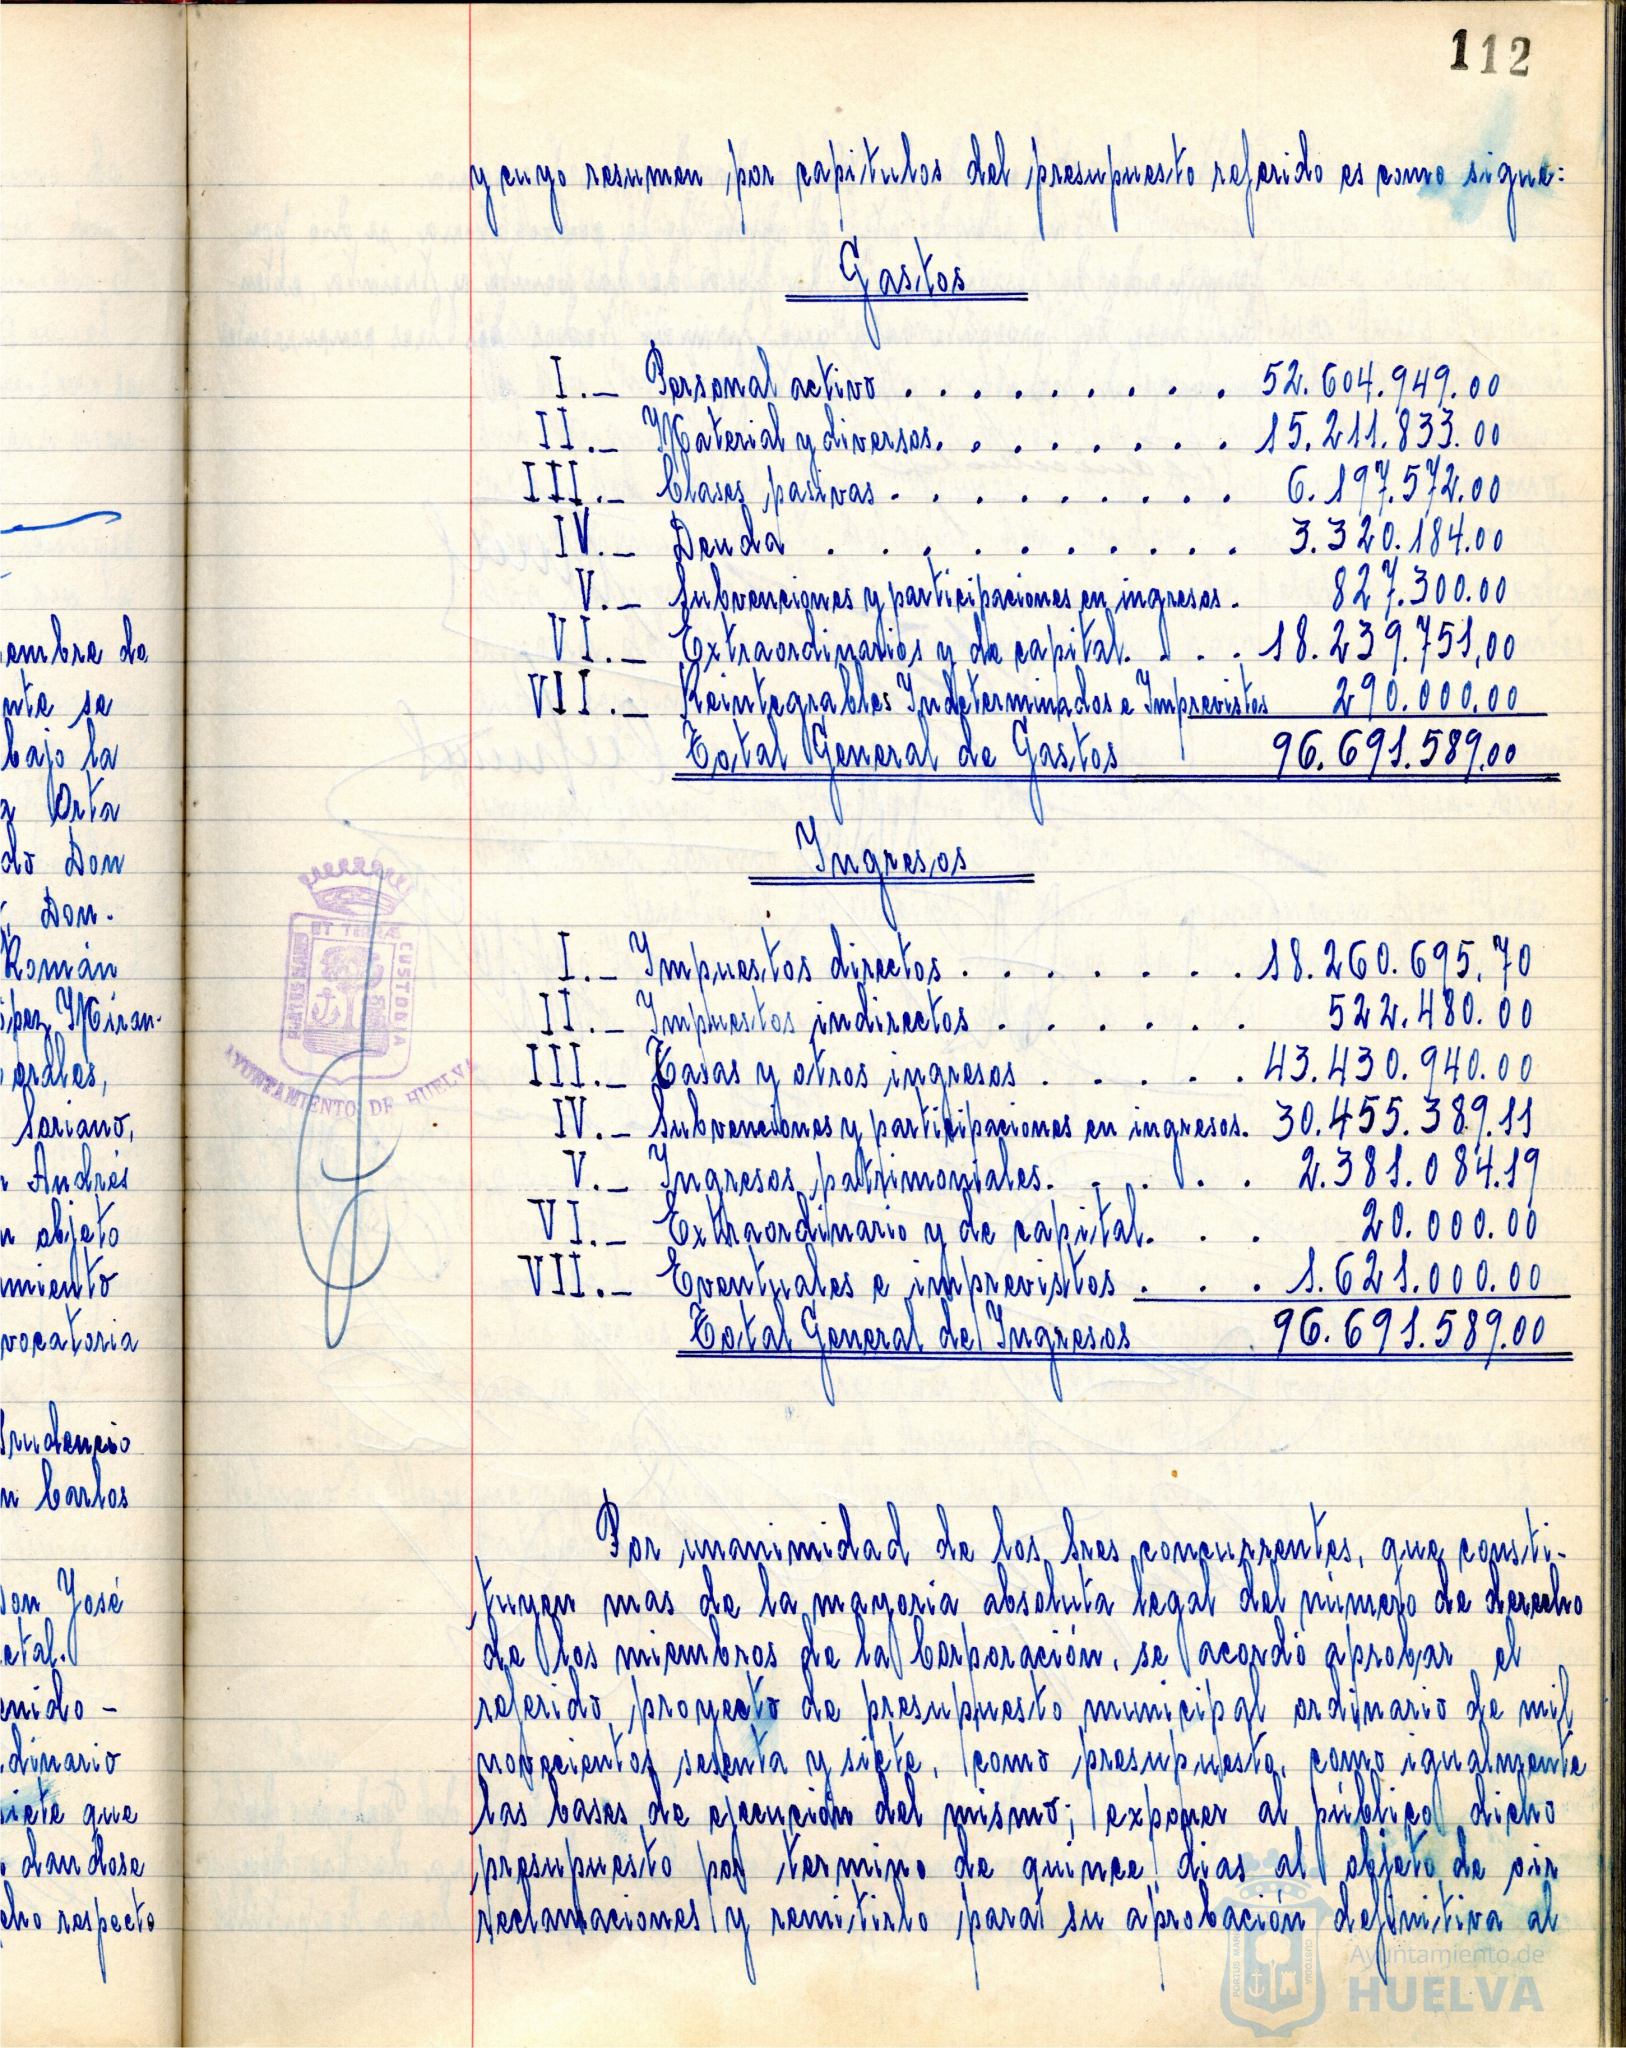 112
y cuyo resumen por capitulos del presupuesto referido es como sigue:
Gastos
I.- Personal activo . . . . . . . . . 52.604.949.00
II.- Material y diversos. . . . . . . 15.211.833.00
III.- Clases pasivas . . . . . . . . 6.197.572.00
IV.- Deuda . . . . . . . . . . 3.320.184.00
V.- Subvenciones y participaciones en ingresos. 827.300.00
VI.- Extraordinarios y de capital. . . . 18.239.751,00
VII.- Reintegrables Indeterminados e Imprevistos 290.000.00
Total General de Gastos 96.691.589.00
Ingresos
I.- Impuestos directos . . . . . . . 18.260.695,70
II.- Impuestos indirectos . . . . . . 522.480.00
III.- Tasas y otros ingresos . . . . . 43.430.940.00
IV.- Subvenciones y participaciones en ingresos. 30.455.389.11
V.- Ingresos patrimoniales. . . . . 2.381.084.19
VI.- Extraordinario y de capital. . . 20.000.00
VII.- Eventuales e imprevistos . . . 1.621.000.00
Total General de Ingresos 96.691.589.00
Por unanimidad de los Sres concurrentes, que consti-
tuyen mas de la mayoria absoluta legal del número de derecho
de los miembros de la Corporación, se acordó aprobar el
referido proyecto de presupuesto municipal ordinario de mil
novecientos sesenta y siete, como presupuesto, como igualmente
las bases de ejecución del mismo; exponer al público dicho
presupuesto por termino de quince dias al objeto de oir
reclamaciones y remitirlo para su aprobación definitiva al
embre de
nte se
bajo la
Orta
do Don
Don.
Román
Miran-
Soriano,
Andrés
objeto
miento
vocatoria
Carlos
José
dinario
que
dandose
respecto
PORTUS MARIS ET TERRAE CUSTODIA
AYUNTAMIENTO DE HUELVA
Ayuntamiento de
HUELVA